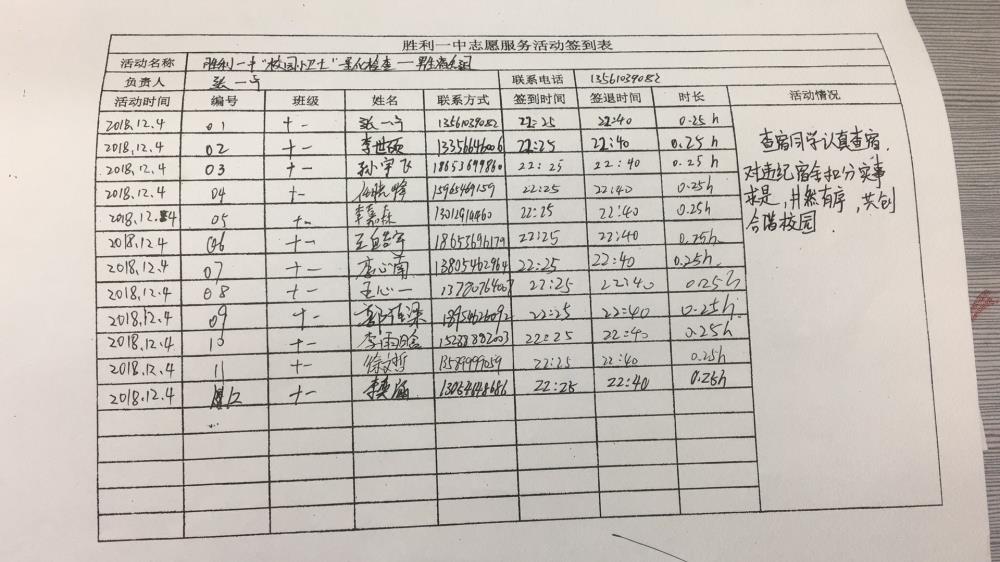 胜利一中志愿服务活动签到表
活动名称 胜利一中"校园卫士"量化检查——男生宿舍组
负责人 张一 联系电话 13561039082
活动时间 编号 班级 姓名 联系方式 签到时间 签退时间 时长 活动情况
2018.12.4 01 十一 张一 13561039082 22:25 22:40 0.25h
2018.12.4 02 十一 李世硕 22:25 22:40 0.25h
2018.12.4 03 十一 孙宇飞 18653699860 22:25 22:40 0.25h
2018.12.4 04 十一 15965469159 22:25 22:40 0.25h
2018.12.4 05 十一 李嘉森 13012914460 22:25 22:40 0.25h
2018.12.4 06 十一 18653696179 22:25 22:40 0.25h
2018.12.4 07 十一 唐心南 13805462964 22:25 22:40 0.25h
2018.12.4 08 十一 王心一 22:25 22:40 0.25h
2018.12.4 09 十一 18954626092 22:25 22:40 0.25h
2018.12.4 10 十一 李雨晗 15238882003 22:25 22:40 0.25h
2018.12.4 11 十一 徐文哲 13589999059 22:25 22:40 0.25h
2018.12.4 12 十一 13054648686 22:25 22:40 0.25h
查宿同学认真查宿,
对违纪宿舍扣分实事
求是,井然有序,共创
合谐校园.